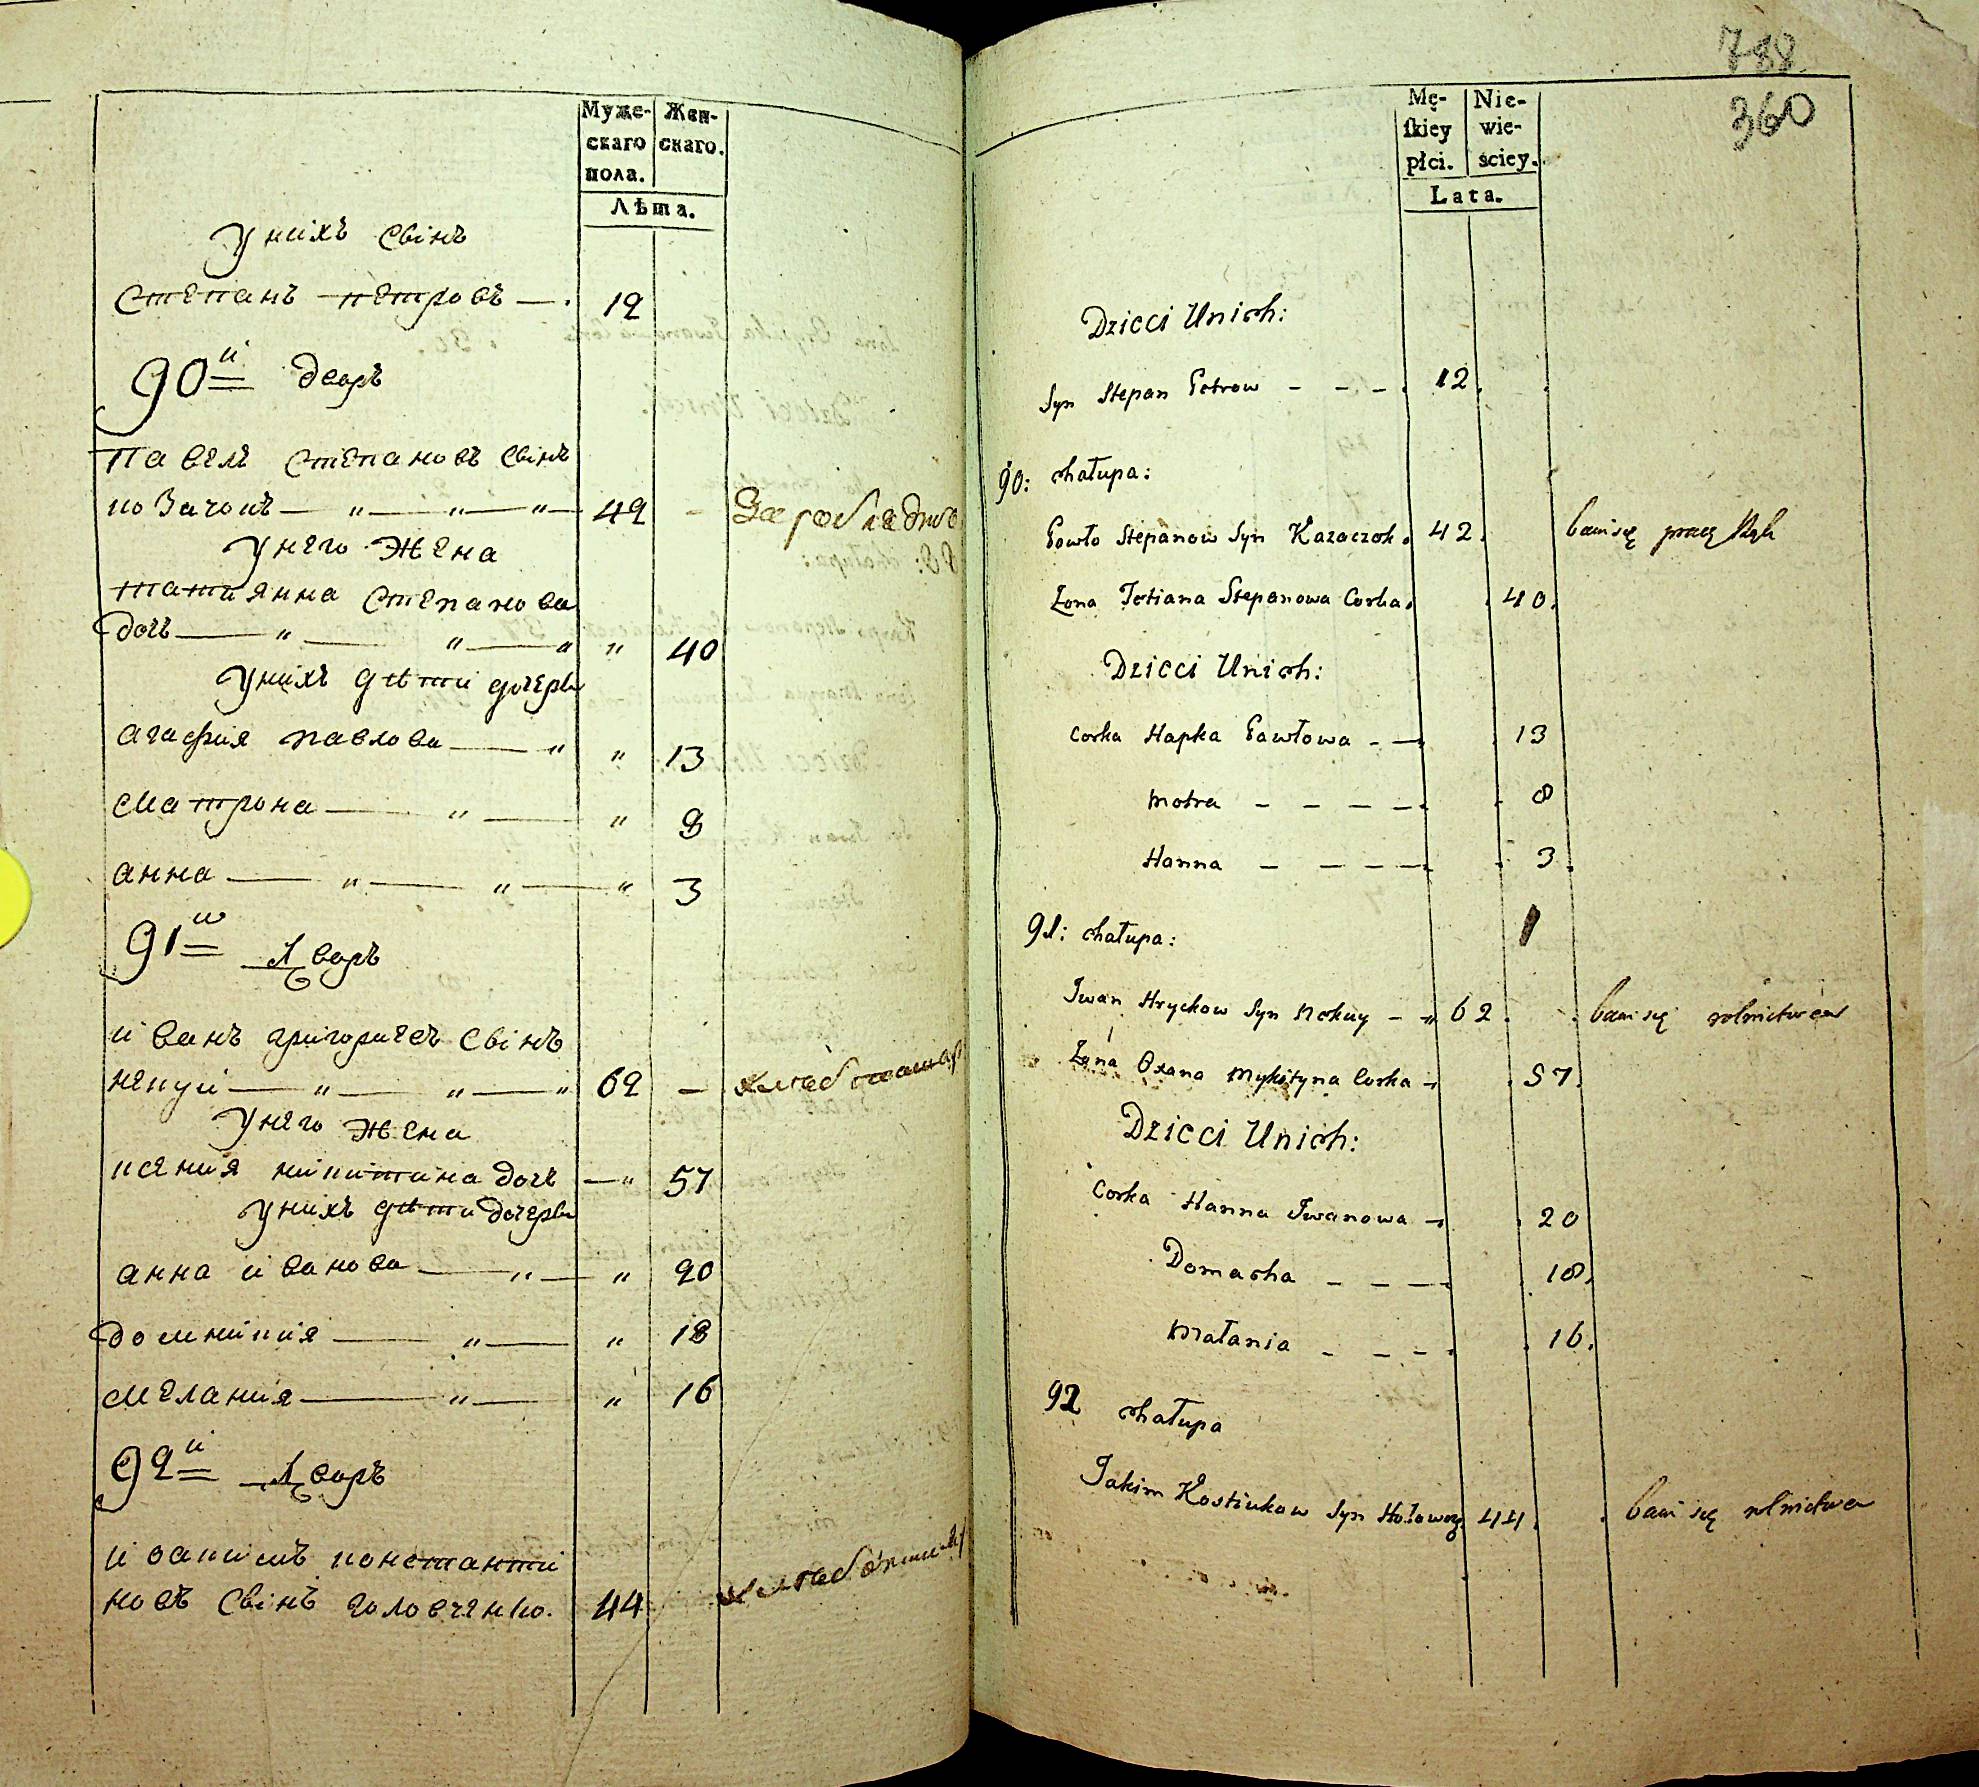 Муже-
скаго
пола.
Жен-
скаго.
Лѣта.
У нихъ Свінъ
Степанъ Петровъ — 12
90й дворъ
Павелъ Степановъ Свінъ
козачокъ — „ — „ — „ — 42 -
У него жена
татиянна Степанова
дочь — „ — „ — „ „ 40
У нихъ дѣти дочерѣ
агафия павлова — „ „ 13
Матрона — „ — „ 8
анна — „ — „ — „ 3
91й Дворъ
иванъ григориевъ Свінъ
некуй — „ — „ — „ 62 — хлебопаш
У него жена
ксения никитина дочь — „ 57
У нихъ дѣти дочерѣ
анна иванова — „ — „ 20
домникия — „ — „ 18
Мелания — „ — „ 16
92й Дворъ
иоакимъ константи
новъ Свінъ головченко. 44
788
360
Mę-
ſkiey
płci.
Nie-
wie-
ściey.
Lata.
Dzieci Unich:
Syn Stepan Petrow - - - . 12.
90: chałupa:
Pawło Stepanow Syn Kazaczok. 42. bawi się pracą Rąk
Żona Tetiana Stepanowa Corka. . 40.
Dzieci Unich:
Corka Hapka Pawłowa - — . 13
Motra - - - - . . 8
Hanna - - - - . . 3.
91: chałupa:
Iwan Hryckow Syn Nekuy - „ 62. . bawi się rolnictwem
Żona Oxana Mykityna Corka - . 57.
Dzieci Unich:
Corka Hanna Iwanowa - . 20
Domacha - - - - . 18.
Małania - - - . . 16.
92 chałupa
Jakim Kostiukow Syn 44. . bawi się rolnictwem